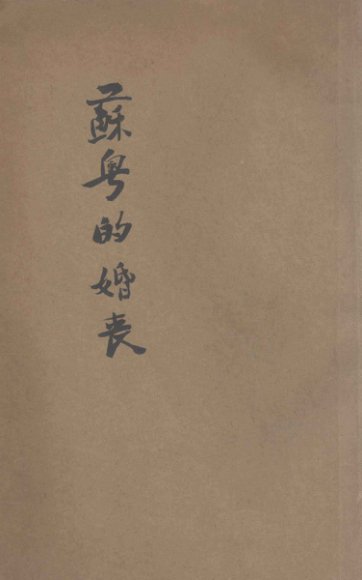 蘇粤的婚喪